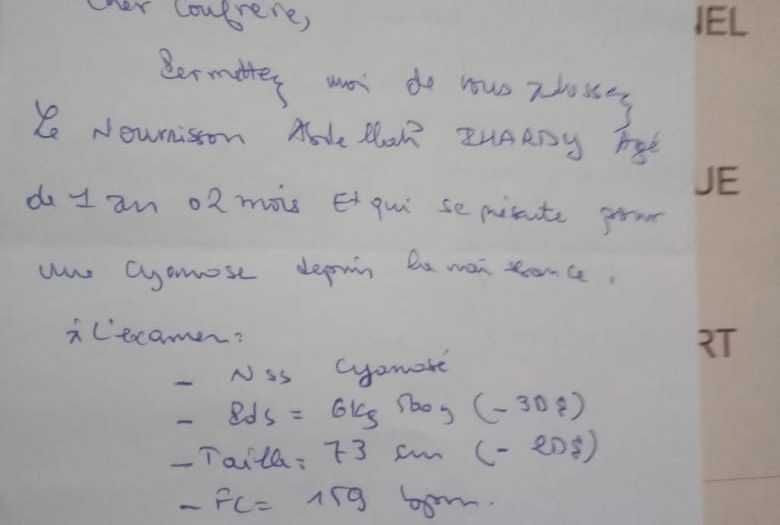 Cher Confrère,
Permettez moi de vous adresser
Le Nourrisson Abdellah ZHARDY Agé
de 1 an 02 mois Et qui se présente pour
une cyanose depuis la naissance.
à L'examen:
- Nss Cyanosé
- Pds = 6Kg 500g (-3DS)
- Taille= 73 cm (-2DS)
- FC= 159 bpm.
NEL
UE
RT